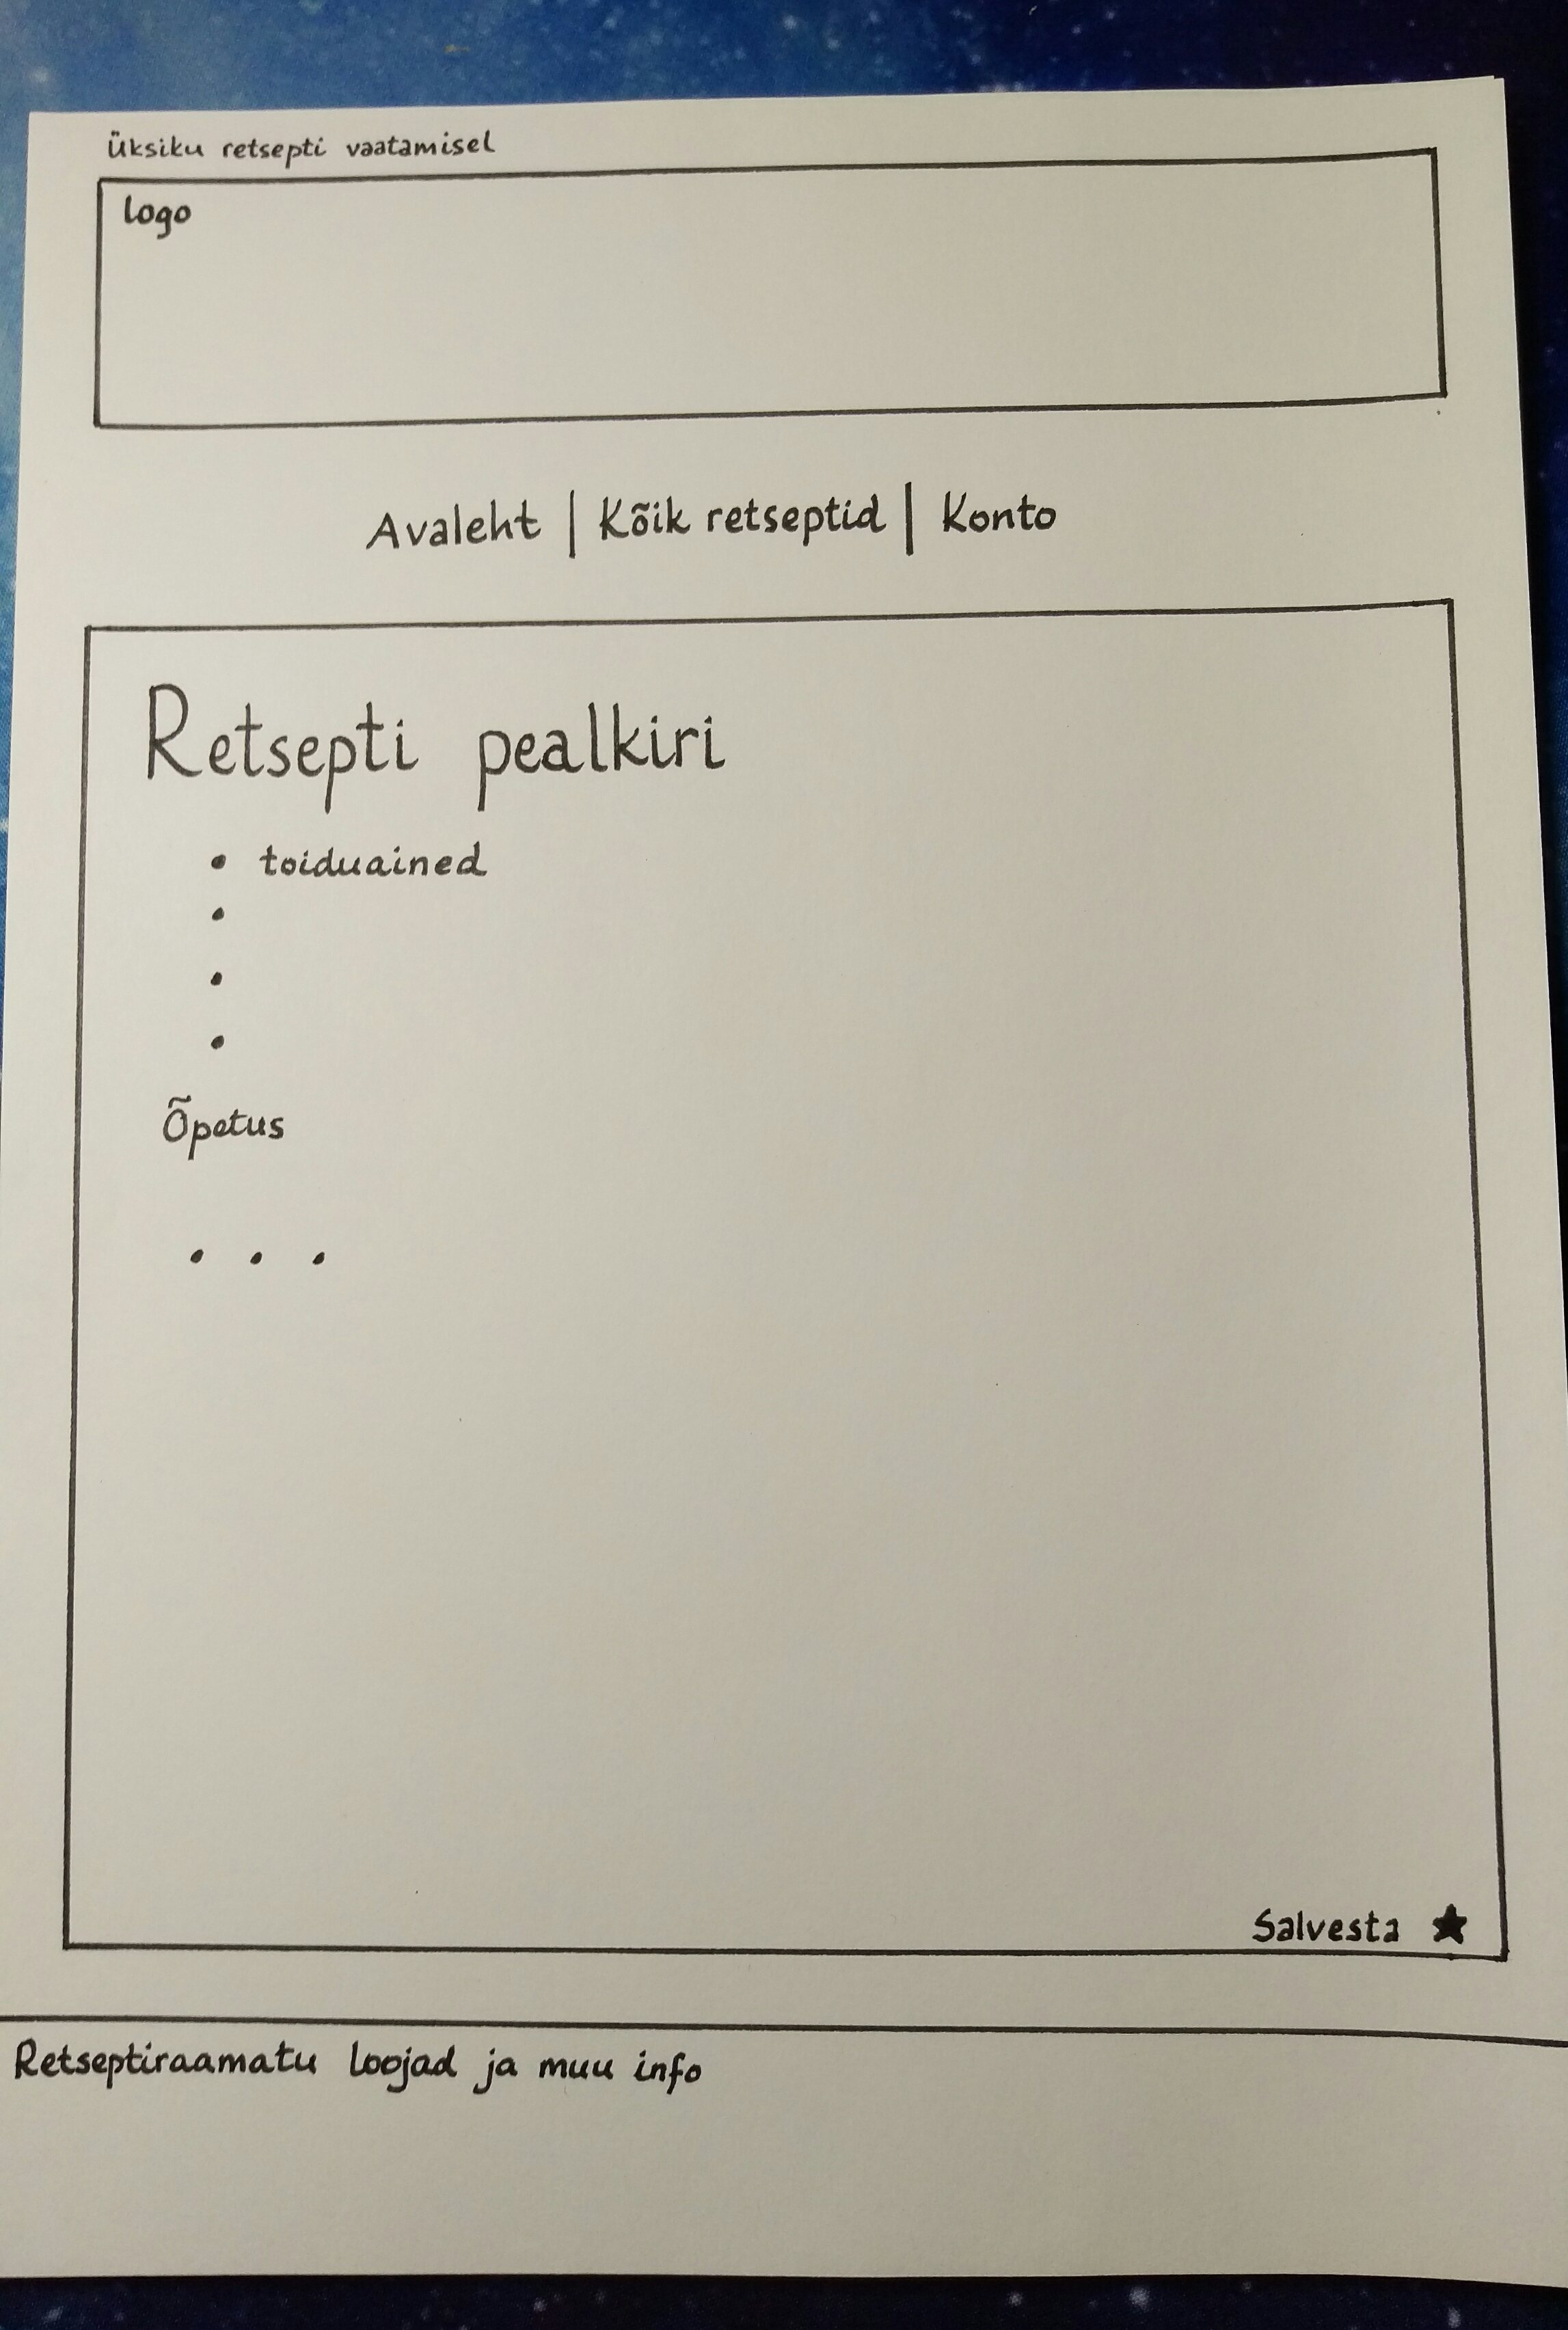 Üksiku retsepti vaatamisel
logo
Avaleht | Kõik retseptid | Konto
Retsepti pealkiri
• toiduained
•
•
•
Õpetus
. . .
Salvesta ★
Retseptiraamatu loojad ja muu info